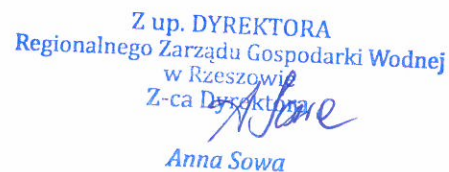 Z up. DYREKTORA
Regionalnego Zarządu Gospodarki Wodnej
w Rzeszowie
Z-ca Dyrektora
A Sowa
Anna Sowa